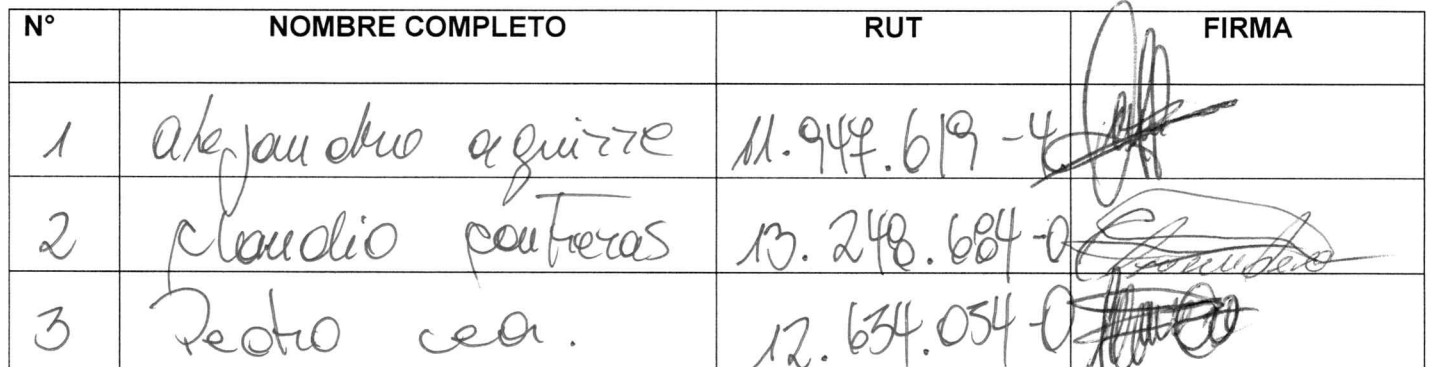 N° NOMBRE COMPLETO RUT FIRMA
1 alejandro aguirre 11.947.619-4
2 claudio contreras 13.248.684-0
3 Pedro cea. 12.634.054-0